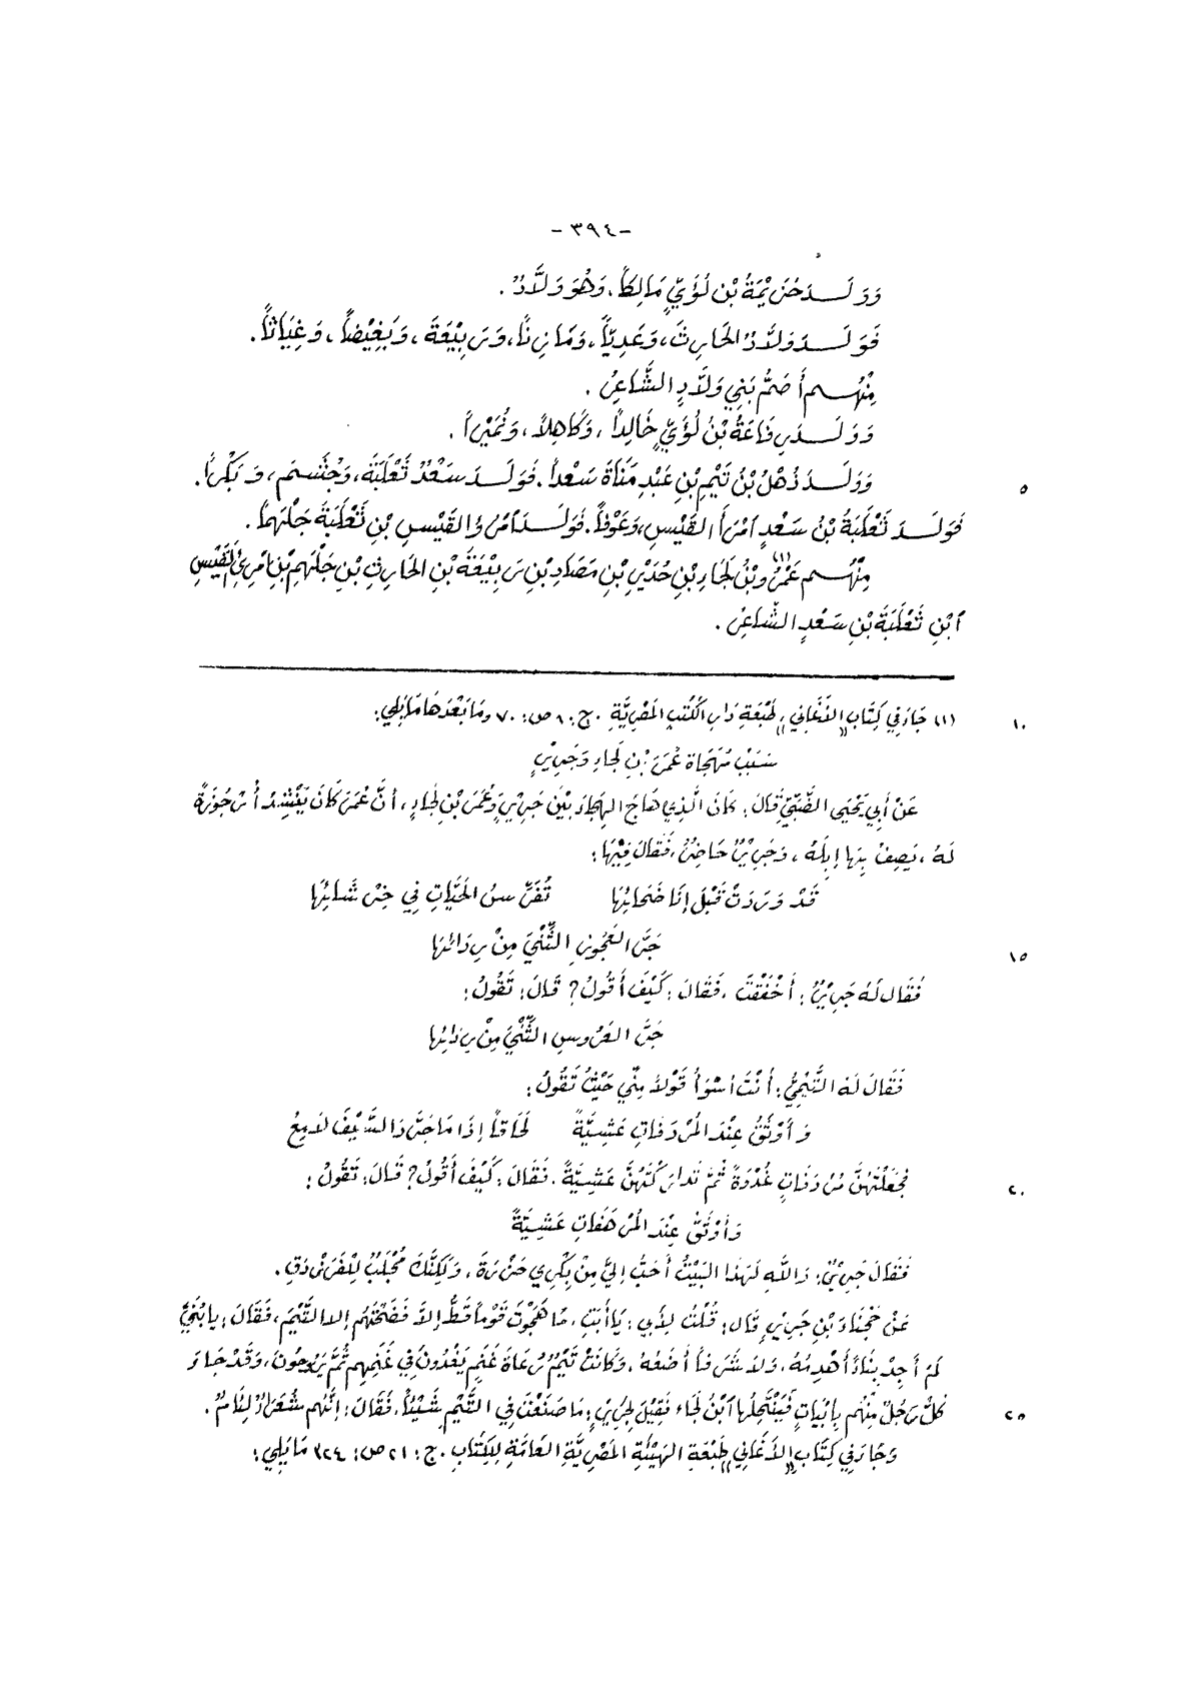 -٣٩٤-
وَوَلَـدَ خُزَيْمَةُ بْنُ لُؤَيٍّ مَالِكاً، وَهُوَ وَلَّادٌ .
فَوَلَـدَ وَلَّادٌ الحَارِثَ، وَعَدِيّاً، وَمَازِناً، وَرَبِيْعَةَ، وَبَغِيْضاً، وَغِيَاثاً.
مِنْهُـم أَصَمُّ بَنِي وَلَّادٍ الشَّاعِرُ .
وَوَلَـدَ رِفَاعَةُ بْنُ لُؤَيٍّ خَالِداً، وَكَاهِلاً، وَنُمَيْراً .
وَوَلَـدَ ذُهْلُ بْنُ تَيْمِ بْنِ عَبْدِ مَنَاةَ سَعْداً. فَوَلَـدَ سَعْدٌ ثَعْلَبَةَ، وَجُشَـمَ، وَبَكْراً. ٥
فَوَلَـدَ ثَعْلَبَةُ بْنُ سَعْدٍ آمْرَأَ القَيْسِ، وَعَوْفاً. فَوَلَـدَ آمْرُؤُ القَيْسِ بْنِ ثَعْلَبَةَ جَلْهَماً .
مِنْهُـم عُمَرُ (١) وبْنُ لَجَاءِ بْنِ حُدَيْرِ بْنِ مَصَادِ بْنِ رَبِيْعَةَ بْنِ الحَارِثِ بْنِ جَلْهَمِ بْنِ آمْرِئِ القَيْسِ
آبْنِ ثَعْلَبَةَ بْنِ سَعْدٍ الشَّاعِرُ .
(١) جَاءَ فِي كِتَابِ «الأَغَانِي» طَبْعَةِ دَارِ الكُتُبِ المَصْرِيَّةِ . ج: ٨ ص: ٧٠ ومَا بَعْدَهَا مَا يَلِي: ١٠
سَبَبُ مُهَجَاة عُمَرَ بْنِ لَجَاءِ وَجَرِيْرٍ
عَنْ أَبِي يَحْيَى الضَّبِّيِّ قَالَ : كَانَ الَّذِي هَاجَ الهِجَاءَ بَيْنَ جَرِيْرٍ وَعُمَرَ بْنِ لَجَاءٍ، أَنَّ عُمَرَ كَانَ يُنْشِدُ أُرْجُوزَةً
لَهُ ، يَصِفُ بِهَا إِبِلَهُ ، وَجَرِيْرٌ حَاضِرٌ، فَقَالَ فِيْهَا:
قَدْ وَرَدَتْ قَبْلَ إِنَا ضَحَائِهَا تُفَرِّسُ الحَيَّاتِ فِي خِرْشَائِهَا
جَرَّ العَجُوزِ الثِّنْيَ مِنْ رِدَائِهَا ١٥
فَقَالَ لَهُ جَرِيْرٌ : أَخْفَقْتَ ، فَقَالَ : كَيْفَ أَقُولُ؟ قَالَ: تَقُولُ:
جَرَّ العَرُوسِ الثِّنْيَ مِنْ رِدَائِهَا
فَقَالَ لَهُ التَّيْمِيُّ: أَنْتَ أَسْوَأُ قَوْلاً مِنِّي حَيْثُ تَقُولُ:
وَأَوْثَقُ عِنْدَ المُرْدَفَاتِ عَشِيَّةً لَحَاقاً إِذَا مَا جَرَّدَ السَّيْفَ لَامِعُ
فَجَعَلْتَهُنَّ مُرْدَفَاتٍ غُدْوَةً ثُمَّ تَدَارَكْتَهُنَّ عَشِيَّةً . فَقَالَ : كَيْفَ أَقُولُ؟ قَالَ: تَقُولُ: ٢٠
وَأَوْثَقُ عِنْدَ المُرْهَفَاتِ عَشِيَّةً
فَقَالَ جَرِيْرٌ: وَاللَّهِ لَهَذَا البَيْتُ أَحَبُّ إِلَيَّ مِنْ بِكْرِي حَزْرَةَ، وَلَكِنَّكَ مُجْلِبٌ لِلْفَرَزْدَقِ .
عَنْ حَجْنَاءَ بْنِ جَرِيْرٍ قَالَ: قُلْتُ لِأَبِي: يَا أَبَتِ، مَا هَجَوْتَ قَوْماً قَطُّ إِلاَّ فَضَحْتَهُم إلا التَّيْمَ، فَقَالَ: يا بُنَيَّ
لَمْ أَجِدْ بِنَاءً أَهْدِمُهُ، وَلاَ شَرَفاً أَضَعُهُ، وَكَانَتْ تَيْمٌ رُعَاةَ غَنَمٍ يَغْدُونَ فِي غَنَمِهِم ثُمَّ يَرُوحُونَ، وَقَدْ جَاءَ
كُلُّ رَجُلٍ مِنْهُم بِأَبْيَاتٍ فَيَنْتَحِلُهَا آبْنُ لَجَاء فَقِيْلَ لِجَرِيْرٍ: مَا صَنَعْتَ فِي التَّيْمِ شَيْئاً، فَقَالَ: إِنَّهُم شُعَرَاءُ لِئَامٌ . ٢٥
وَجَاءَ فِي كِتَابِ «الأَغَانِي» طَبْعَةِ الهَيْئَةِ المَصْرِيَّةِ العَامَّةِ لِلكِتَابِ . ج: ٢١ ص: ٣٢٤ مَا يَلِي: